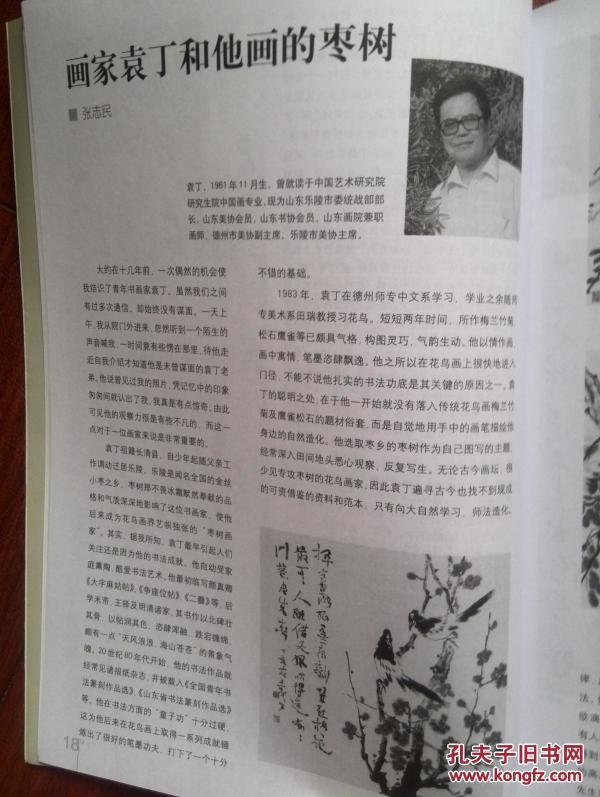 画家袁丁和他画的枣树
■ 张志民
袁丁，1961年11月生，曾就读于中国艺术研究院
研究生院中国画专业，现为山东乐陵市委统战部部
长，山东美协会员，山东书协会员，山东画院兼职
画师、德州市美协副主席，乐陵市美协主席。
大约在十几年前，一次偶然的机会使
我结识了青年书画家袁丁。虽然我们之间
有过多次通信，却始终没有谋面。一天上
午，我从院门外进来，忽然听到一个陌生的
声音喊我，一时间竟有些愣在那里，待他走
近自我介绍才知道他是未曾谋面的袁丁老
弟。他说曾见过我的照片，凭记忆中的印象
匆匆间就认出了我，我真是有点惊奇。由此
可见他的观察力很是有些不凡的，而这一
点对于一位画家来说是非常重要的。
袁丁祖籍长清县，自少年起随父亲工
作调动迁居乐陵。乐陵是闻名全国的金丝
小枣之乡，枣树那不畏冰霜默然奉献的品
格和气质深深地影响了这位书画家，使他
后来成为花鸟画界艺帜独张的“枣树画
家”。其实，据我所知，袁丁最早引起人们
关注还是因为他的书法成就。他自幼受家
庭熏陶，酷爱书法艺术。他最初临写颜真卿
《大字麻姑帖》、《争座位帖》、《二爨》等，后
学米芾、王铎及明清诸家，其书作以北碑壮
其骨，以帖润其色，恣肆浑融，跌宕缠绵，
颇有一点“天风浪浪，海山苍苍”的景象气
魄。20世纪80年代开始，他的书法作品就
经常见诸报纸杂志，并被载入《全国青年书
法篆刻作品选》、《山东省书法篆刻作品选》
等。他在书法方面的“童子功”十分过硬，
这为他后来在花鸟画上取得一系列成就锤
炼出了很好的笔墨功夫，打下了一个十分
不错的基础。
1983年，袁丁在德州师专中文系学习，学业之余随师
专美术系田瑞教授习花鸟。短短两年时间，所作梅兰竹菊、
松石鹰雀等已颇具气格，构图灵巧，气韵生动。他以情作画，
画中寓情，笔墨恣肆飘逸。他之所以在花鸟画上很快地进入
门径，不能不说他扎实的书法功底是其关键的原因之一。袁
丁的聪明之处，在于他一开始就没有落入传统花鸟画梅兰竹
菊及鹰雀松石的题材俗套，而是自觉地用手中的画笔描绘他
身边的自然造化。他选取枣乡的枣树作为自己图写的主题，
经常深入田间地头悉心观察，反复写生。无论古今画坛，很
少见专攻枣树的花鸟画家，因此袁丁遍寻古今也找不到现成
的可资借鉴的资料和范本，只有向大自然学习，师法造化。
18
律，
法，
欲滴
有人
到
的高
先生
孔夫子旧书网
www.kongfz.com